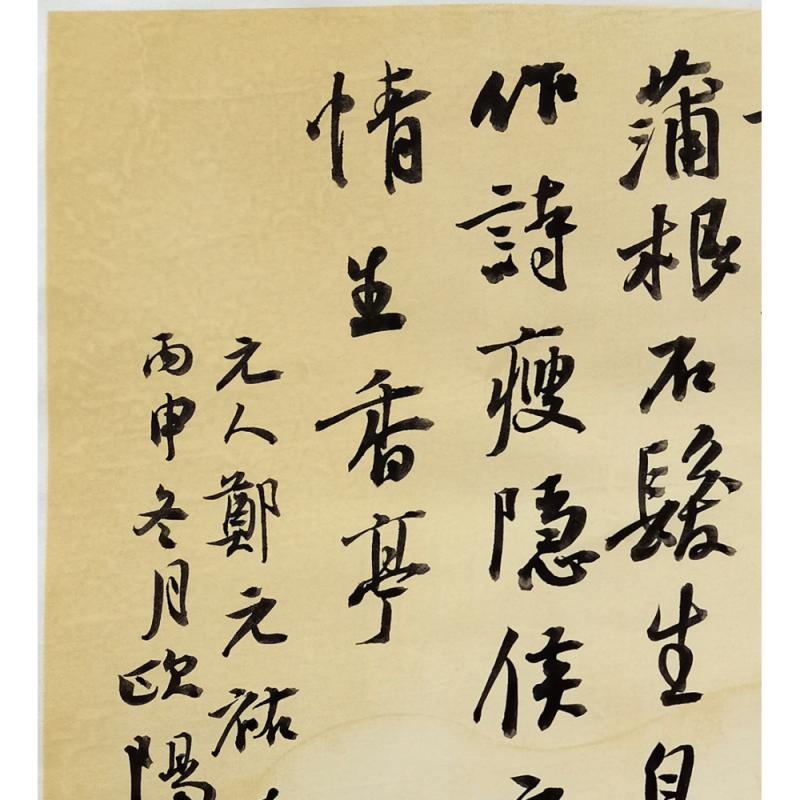 蒲根石髮生自
作詩瘦隱侯
情生香亭
元人鄭元祐
丙申冬月歐陽